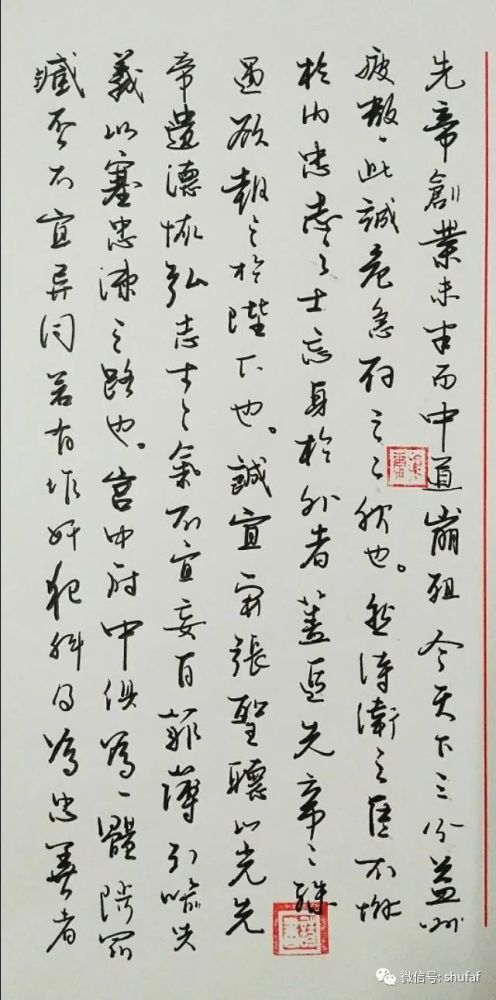 先帝創業未半而中道崩殂今天下三分益州
疲敝、此誠危急存亡之秋也。然侍衛之臣不懈
於内忠志之士忘身於外者蓋追先帝之殊
遇欲報之於陛下也。誠宜開張聖聽以光先
帝遺德恢弘志士之氣不宜妄自菲薄引喻失
義以塞忠諫之路也。宮中府中俱為一體陟罰
臧否不宜異同若有作奸犯科及為忠善者
微信号: shufaf